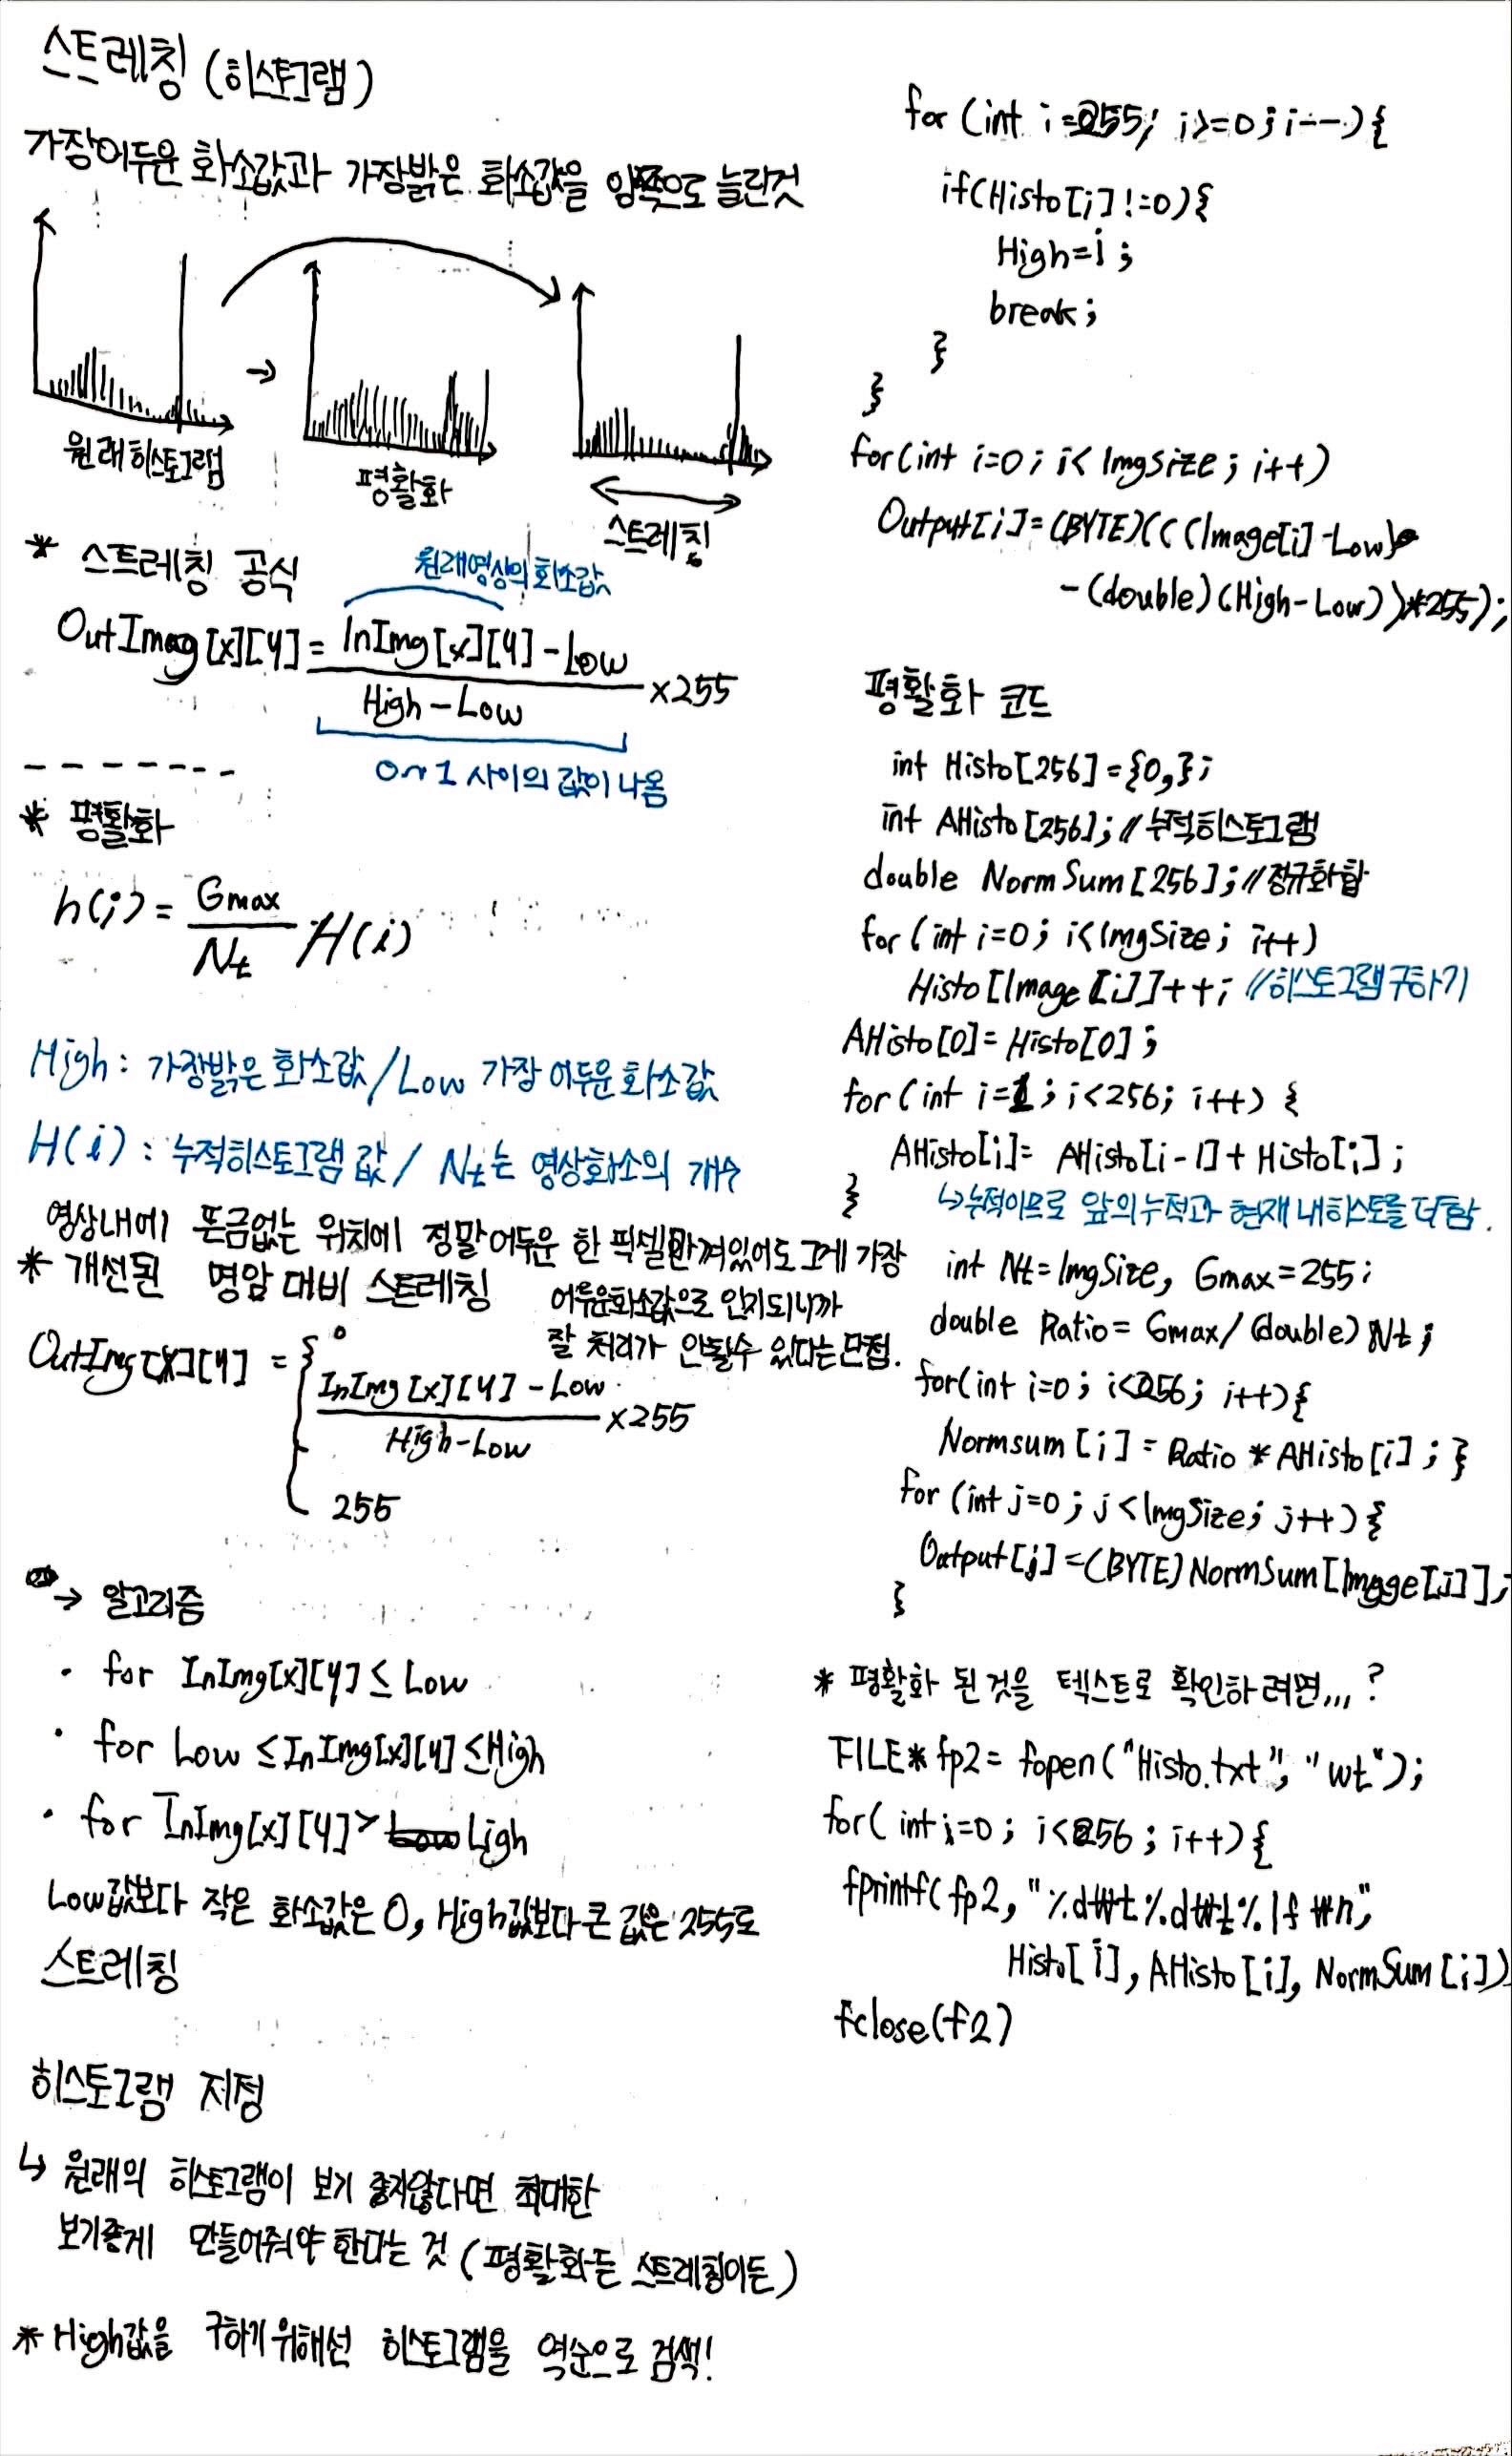 스트레칭 (히스토그램)
가장어두운 화소값과 가장밝은 화소값을 양쪽으로 늘린것
원래히스토그램
→
평활화
스트레칭
* 스트레칭 공식
원래영상의 화소값
OutImag[x][y] = InImg[x][y] - Low
High - Low
×255
0~1 사이의 값이 나옴
* 평활화
h(i) = Gmax
Nt
H(i)
High : 가장밝은 화소값 / Low 가장 어두운 화소값
H(i) : 누적히스토그램 값 / Nt는 영상화소의 개수
영상내에 뜬금없는 위치에 정말어두운 한 픽셀만껴있어도 그게 가장
어두운화소값으로 인지되니까
잘 처리가 안될수 있다는단점.
* 개선된 명암대비 스트레칭
OutImg[x][y] = {
0
InImg[x][y] - Low
High - Low
×255
255
→ 알고리즘
· for InImg[x][y] ≤ Low
· for Low ≤ InImg[x][y] ≤ High
· for InImg[x][y] > Ligh
Low값보다 작은 화소값은 0, High값보다 큰 값은 255로
스트레칭
히스토그램 지정
↳ 원래의 히스토그램이 보기 좋지않다면 최대한
보기좋게 만들어줘야 한다는 것 (평활화든 스트레칭이든)
* High값을 구하기 위해선 히스토그램을 역순으로 검색!
for (int i=255; i>=0; i--){
if(Histo[i]!=0){
High=i;
break;
}
}
for(int i=0; i< ImgSize; i++)
Output[i]=(BYTE)(((Image[i]-Low)
-(double)(High-Low))*255);
평활화 코드
int Histo[256]={0,};
int AHisto[256]; // 누적히스토그램
double NormSum[256]; // 정규화합
for (int i=0; i<ImgSize; i++)
Histo[Image[i]]++; // 히스토그램구하기
AHisto[0]= Histo[0];
for (int i=1; i<256; i++) {
AHisto[i]= AHisto[i-1]+ Histo[i];
}
↳누적이므로 앞의누적과 현재 내히스토를 더함.
int Nt=ImgSize, Gmax=255;
double Ratio= Gmax/(double)Nt;
for(int i=0; i<256; i++){
Normsum[i]= Ratio * AHisto[i]; }
for (int j=0; j<ImgSize; j++){
Output[j]=(BYTE)NormSum[Image[j]];
}
* 평활화 된것을 텍스트로 확인하려면...?
FILE* fp2= fopen("Histo.txt", "wt");
for( int i=0; i<256; i++){
fprintf( fp2, "%d₩t%d₩t%lf₩n",
Histo[i], AHisto[i], NormSum[i])
fclose(f2)